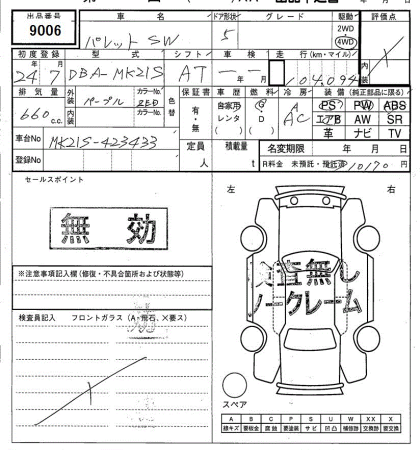 出品番号 車名 ドア形状 グレード 駆動 評価点
9006 パレットSW 5 2WD 4WD
初度登録 型式 シフト 車検 走行(km・マイル) 内装
24年7月 DBA-MK21S AT ー年ー月 104,094
排気量 外装 カラーNo. 色替 保証書 車歴 燃料 冷房 装備(純正部品に限る)
660cc パープル ZED 有・無 自家用 G D A AC PS PW ABS
内装 カラーNo. レンタ エアB AW SR
( ) 革 ナビ TV
車台No MK21S-423433 定員 人 積載量 t 名変期限 年 月 日
登録No R料金 未預託・預託済 10170円
セールスポイント 左 右
無効
検査無し
ノークレーム
※注意事項記入欄(修復・不具合箇所および状態等)
検査員記入 フロントガラス(A・飛石、×要ス)
スペア
A B C P S U W X XX X
線キズ 要板金 腐食 要塗装 サビ 凹凸 補修跡 交換跡 要交換